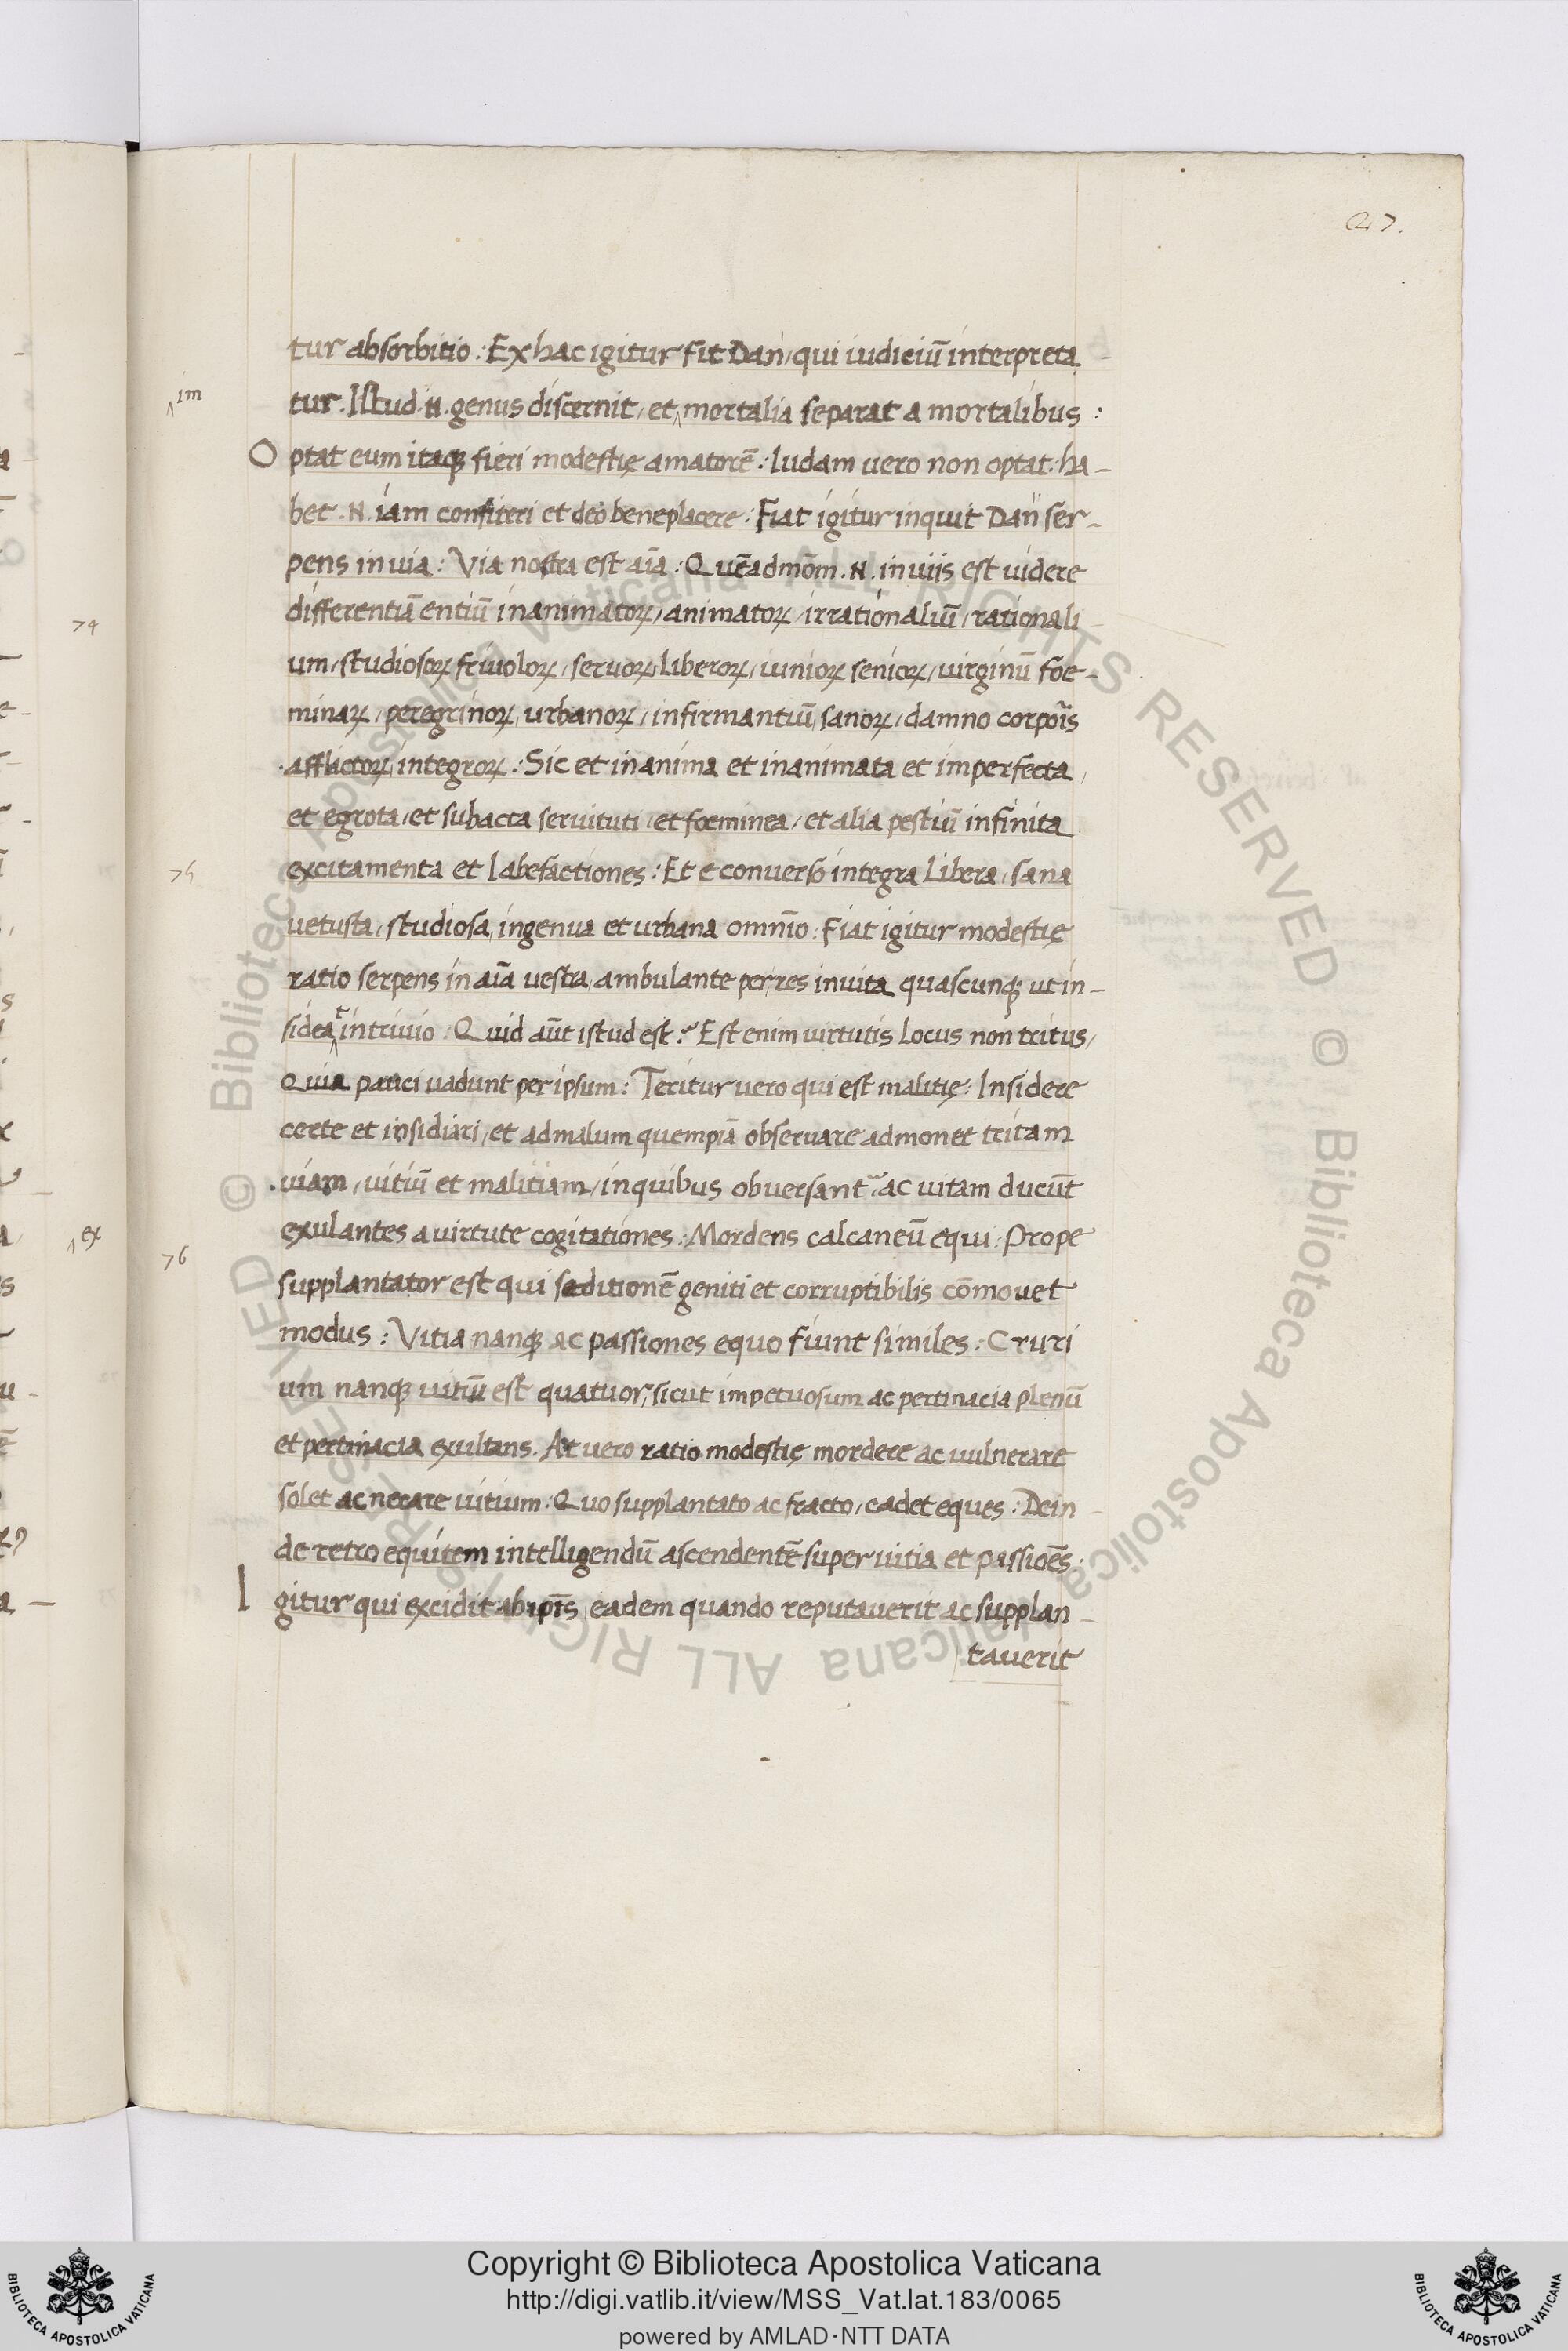 27.
tur absorbitio : Ex hac igitur fit Dan / qui iudiciū interpreta
im
tur . Istud .N. genus discernit / et ‸ mortalia separat a mortalibus :
Optat eum itaqꝫ fieri modestię amatorē : Iudam vero non optat : ha-
bet .N. iam confiteri et deo beneplacere : Fiat igitur inquit Dan ser-
pens in uia : Via nostra est aīa : Quēadmōm .N. in uiis est uidere
74
differentiā entiū inanimatoꝝ / animatoꝝ / irrationaliū / rationali
um / studiosoꝝ friuoloꝝ / seruoꝝ / liberoꝝ / iunioꝝ senioꝝ / uirginū foe-
minaꝝ / peregrinoꝝ / urbanoꝝ / infirmantiū / sanoꝝ / damno corpoīs
afflictoꝝ / integroꝝ : Sic et in anima et inanimata et imperfecta /
et egrota / et subacta seruituti / et foeminea / et alia pestiū infinita
75
excitamenta et labefactiones : Et e conuerso integra libera / sana
uetusta / studiosa / ingenua et urbana omnīo : Fiat igitur modestię
ratio serpens in aīa uestra / ambulante per res in uita quascunqꝫ ut in-
sidea‸t in triuio : Quid aūt istud est ? Est enim uirtutis locus non tritus /
Quia pauci uadunt per ipsum : Teritur uero qui est malitię : Insidere
certe et insidiari / et ad malum quempiā obseruare admonet tritam
uiam / uitiū et malitiam / in quibus obuersant ac uitam ducūt
76
exulantes a uirtute cogitationes : Mordens calcaneū equi : Prope
supplantator est qui seditionē geniti et corruptibilis cōmouet
modus : Vitia nanqꝫ ac passiones equo fiunt similes : Cruri
um nanqꝫ uitiū est quatuor / sicut impetuosum ac pertinacia plenū
et pertinacia exultans . At uero ratio modestię mordere ac uulnerare
solet ac necare uitium : Quo supplantato ac fracto / cadet eques : Dein-
de retro equitem intelligendū ascendentē super uitia et passioēs :
Igitur qui excidit ab ipīs / eadem quando reputauerit ac supplan-
tauerit
‸ex
Copyright © Biblioteca Apostolica Vaticana
http://digi.vatlib.it/view/MSS_Vat.lat.183/0065
powered by AMLAD·NTT DATA
BIBLIOTECA APOSTOLICA VATICANA
BIBLIOTECA APOSTOLICA VATICANA
© Biblioteca Apostolica Vaticana ALL RIGHTS RESERVED © Biblioteca Apostolica Vaticana ALL RIGHTS RESERVED